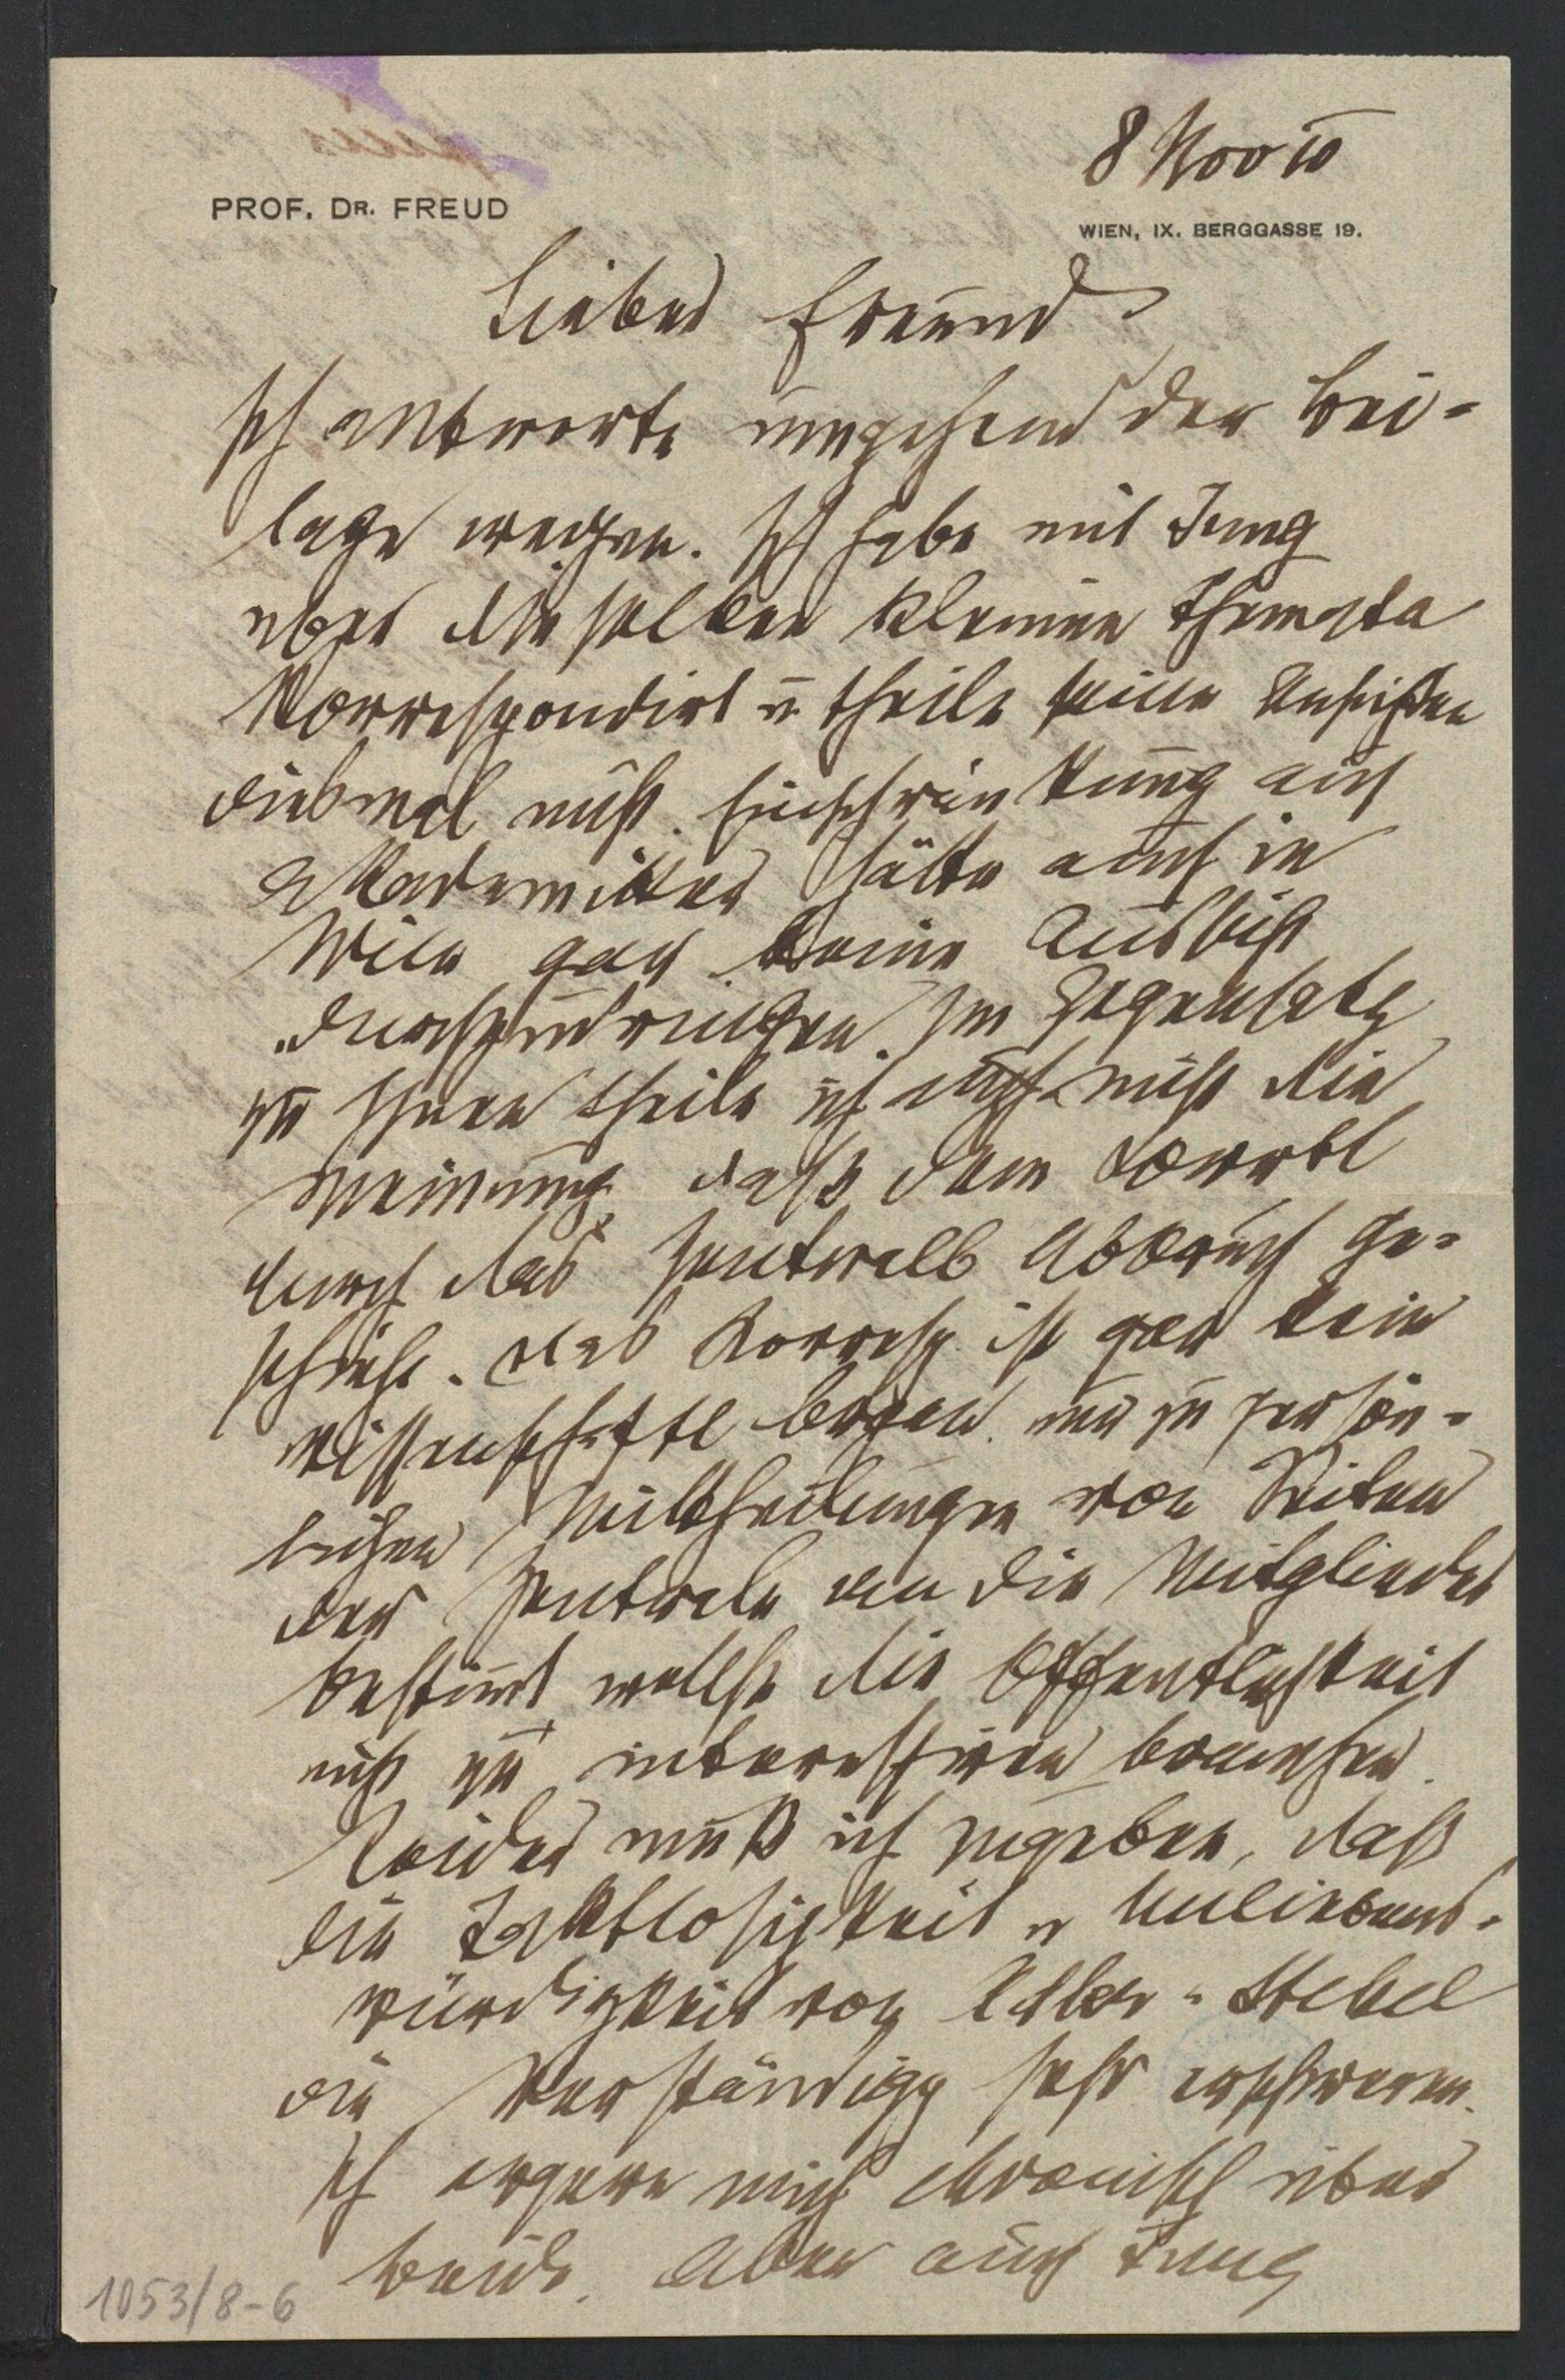 8 Nov 10
PROF. DR. FREUD
WIEN, IX. BERGGASSE 19.
Lieber Freund
Ich antworte umgehend der Bei-
lage wegen. Ich habe mit Jung
über dieselben kleinen Themata
korrespondirt u theile seine Ansichten
diesmal nicht. Einschränkung auf
Akademiker hätte auch in
Wien gar keine Aussicht
durchzudringen. Im Gegensatz
zu Ihnen theile ich auch nicht die
Meinung, daß dem Korrbl
durch das Zentralb Abbruch ge-
schieht. Das Korresp. ist gar kein
wissenschaftl Organ. nur zu persön-
lichen Mittheilungen von Seiten
der Zentrale an die Mitglieder
bestimt welche die Öffentlichkeit
nicht zu interessiren brauchen.
Leider muß ich zugeben, daß
die Taktlosigkeit u Unliebens-
würdigkeit von Adler u Stekel
die Verständigg sehr erschweren.
Ich ärgere mich chronisch über
beide. Aber auch Jung
1053/8-6